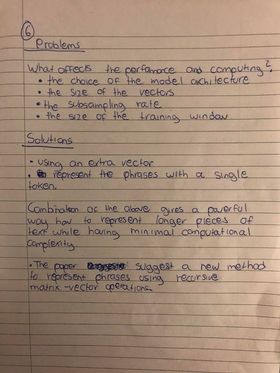 6
Problems
What affects the perfomance and computing?
• the choice of the model architecture
• the size of the vectors
• the subsampling rate
• the size of the training window
Solutions
• using an extra vector
• represent the phrases with a single
token.
Combination of the above gives a powerful
way how to represent longer pieces of
text while having minimal computational
complexity.
• The paper suggest a new method
to represent phrases using recursive
matrix-vector operations.